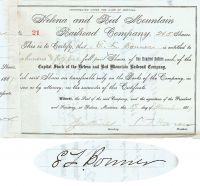 INCORPORATED UNDER THE LAWS OF MONTANA
Helena and Red Mountain
Railroad Company,
21
Shares
This is to Certify that E. L. Bonner is entitled to
full paid Shares of One Hundred Dollars each, of the
Capital Stock of the Helena and Red Mountain Railroad Company.
and said Shares are transferable only on the Books of the Company, in
person or by attorney, on the surrender of this Certificate.
Witness, the Seal of the said Company, and the signatures of the President
and Secretary, at Helena, Montana
E L Bonner